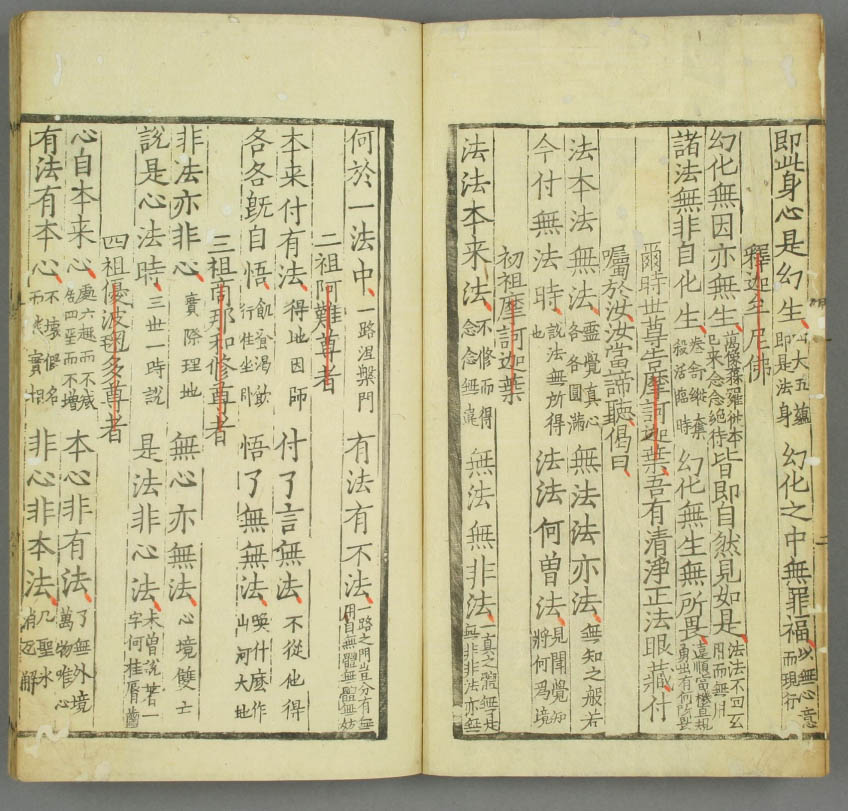 即此身心是幻生四大五蘊即是法身幻化之中無罪福以無心意而現行
釋迦牟尼佛
幻化無因亦無生萬像森羅從本已来念念絶待皆即自然見如是法法不同玄用而無用
諸法無非自化生卷舒縱奪殺活臨時幻化無生無所畏
爾時世尊告摩訶迦葉吾有清淨正法眼藏付
囑於汝汝當諦聽偈曰
法本法無法靈覺真心各各圓滿無法法亦法無知之般若
今付無法時說法無所得也法法何曽法見聞覺知將何爲境
初祖摩訶迦葉
法法本来法不修而得念念無違無法無非法一真之體無是無非非法亦無
何於一法中一路涅槃門有法有不法一路之門豈分有無用自無體無體無妨
二祖阿難尊者
本来付有法得地因師付了言無法不從他得
各各旣自悟飢飡渴飲行住坐卧悟了無無法喚什麽作山河大地
三祖商那和修尊者
非法亦非心實際理地無心亦無法心境雙亡
說是心法時三世一時說是法非心法未曽說著一字何挂脣齒
四祖優波毱多尊者
心自本来心處六趣而不减居四聖而不增本心非有法了無外境萬物唯心
有法有本心不壞假名而𠁅實相非心非本法凡聖氷消瓦解